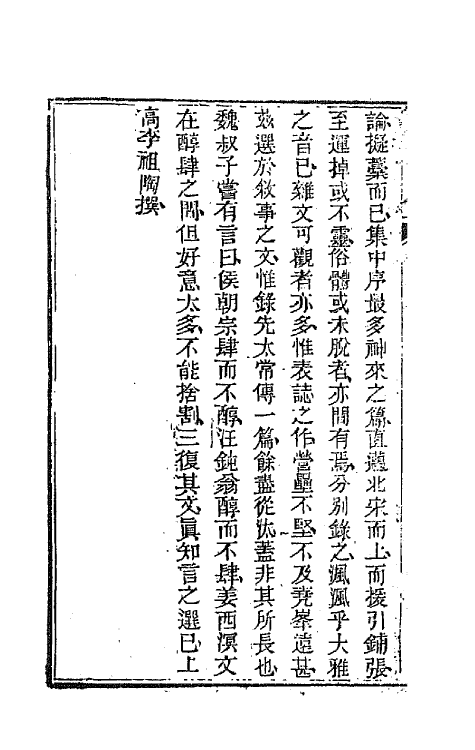 論擬藁而已集中序最多神來之篇直邁北宋而上而援引鋪張
至運掉或不靈俗體或未脫者亦間有焉分別錄之渢渢乎大雅
之音已雜文可觀者亦多惟表誌之作營壘不堅不及堯峯遠甚
茲選於敘事之文惟錄先太常傳一篇餘盡從汰蓋非其所長也
魏叔子嘗有言曰侯朝宗肆而不醇汪鈍翁醇而不肆姜西溟文
在醇肆之間但好意太多不能捨割三復其文眞知言之選已上
高李祖陶撰